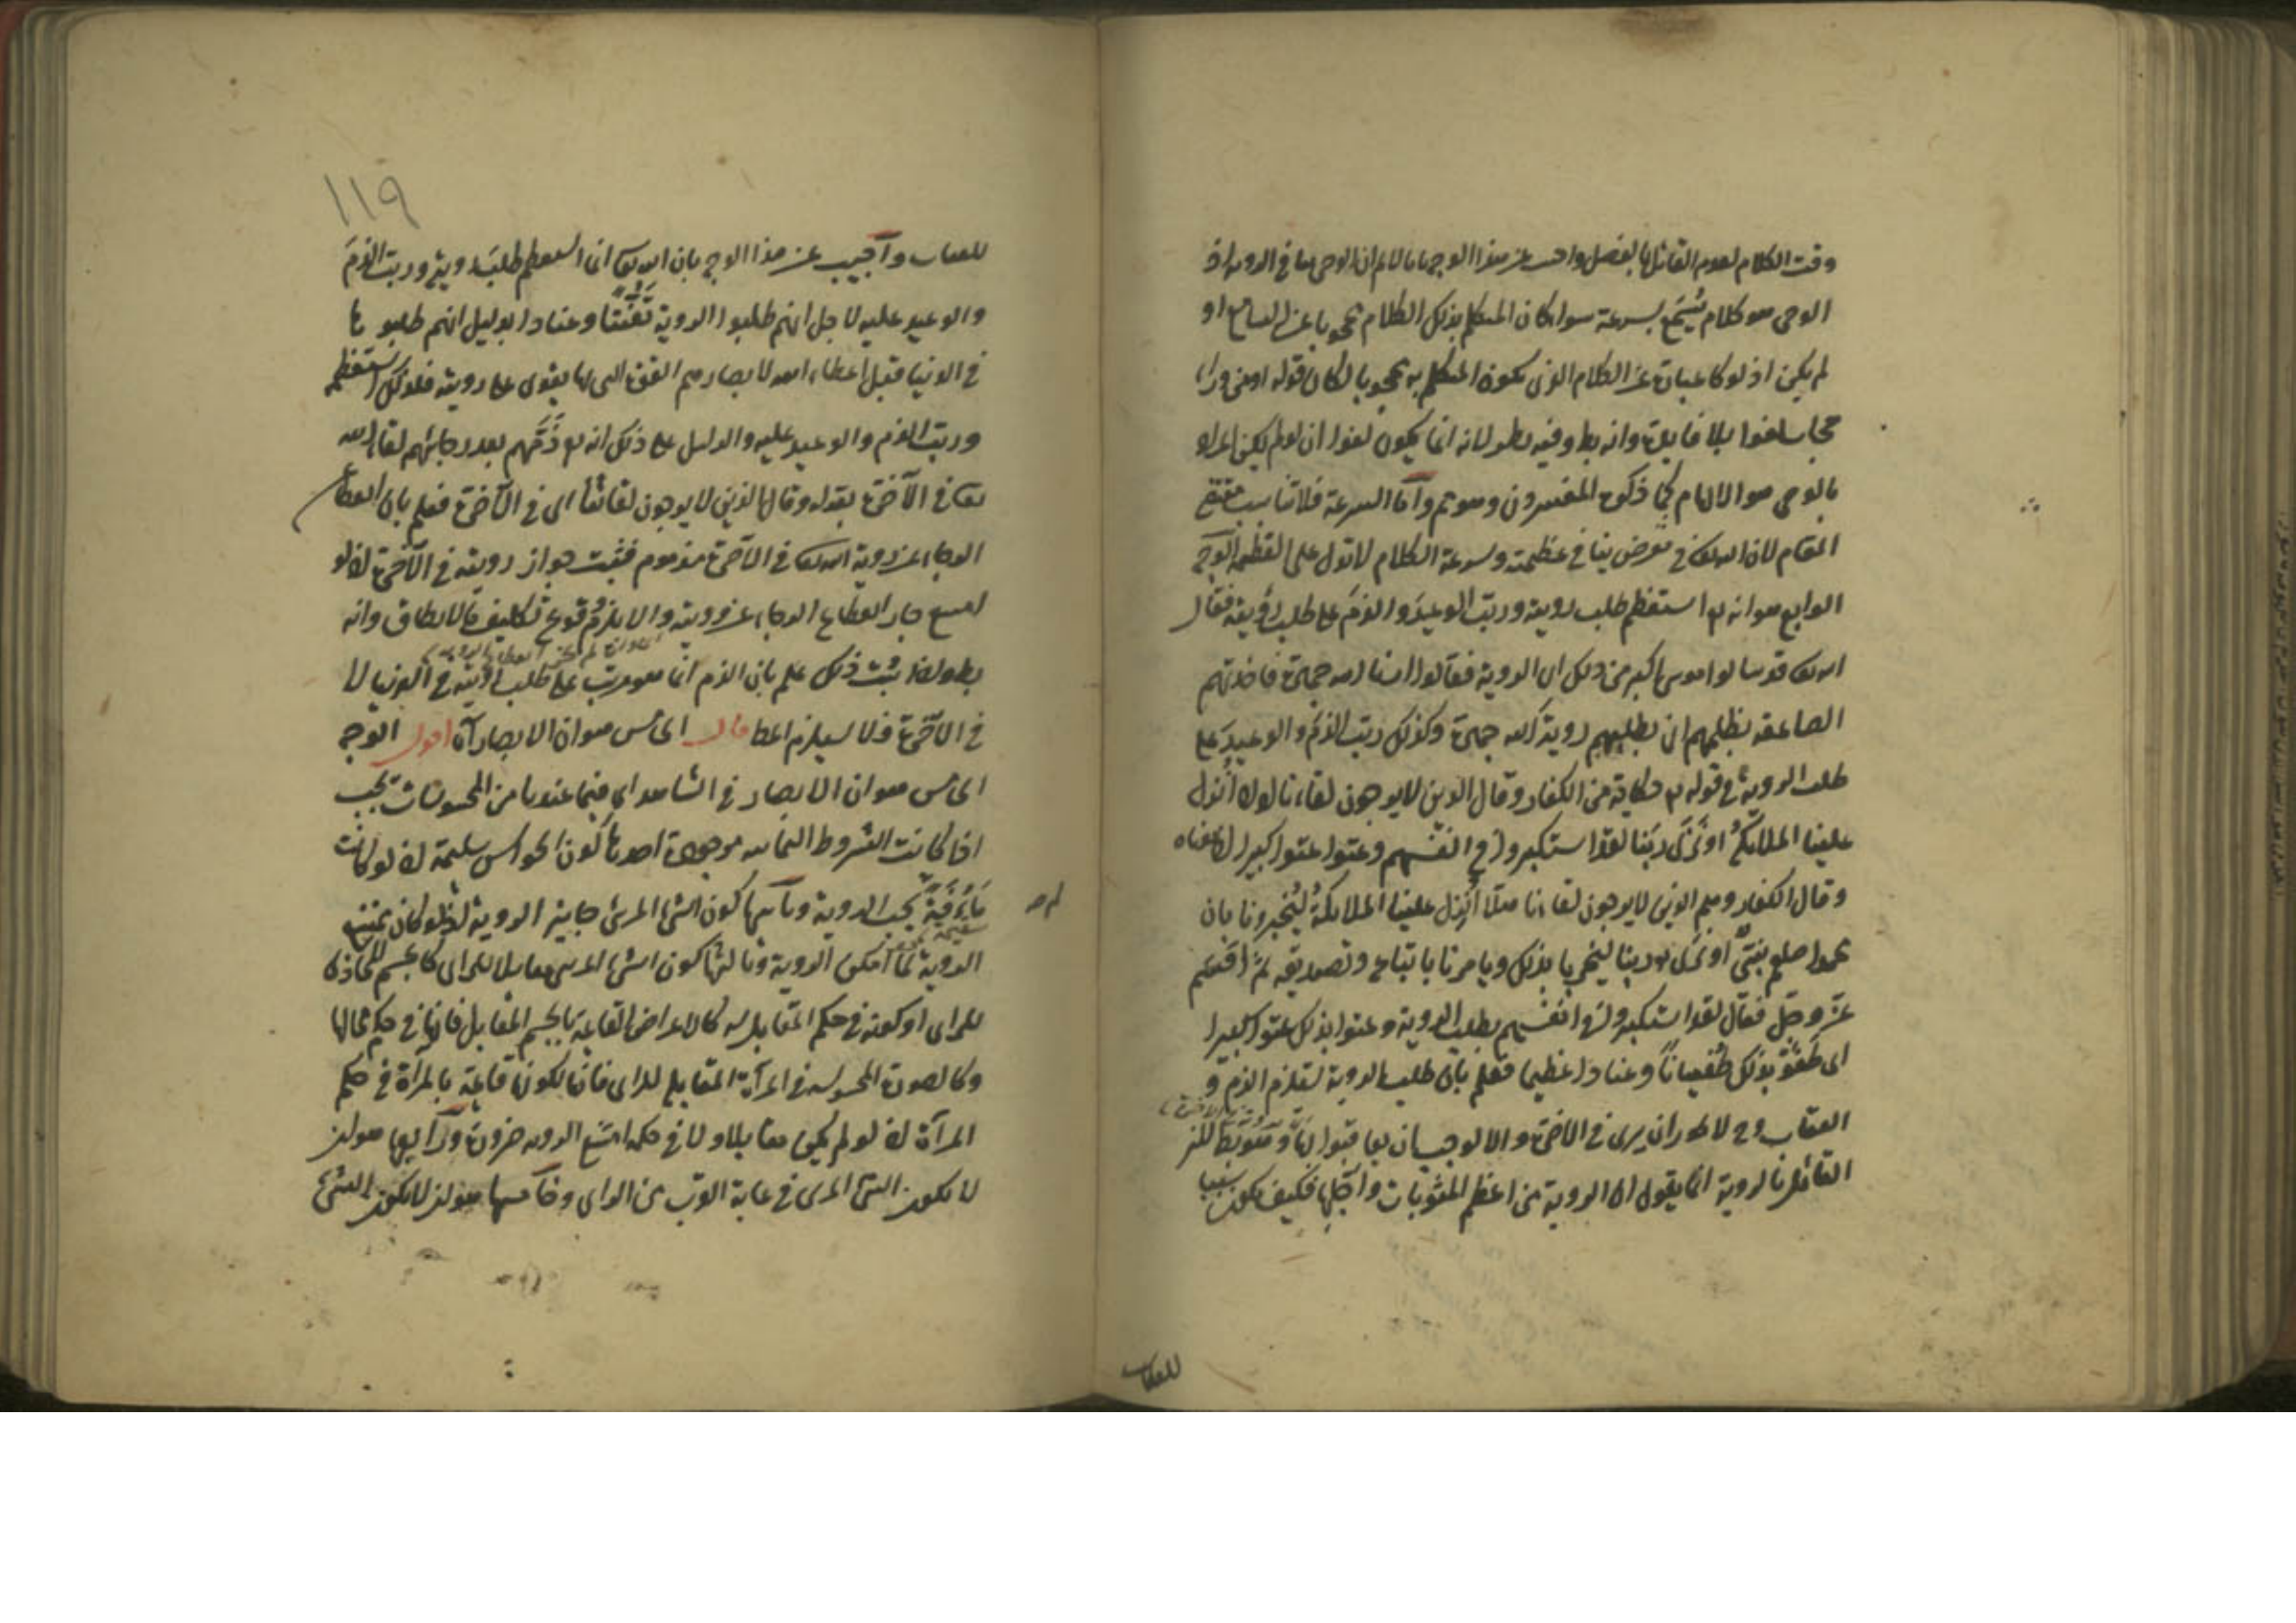 وقت الكلام لعدم القائل بالفصل واجيب عن هذا الوجه بانا لانم ان الوحى ما فى الرويه اذ
الوحى هو كلام يُسْمَع بسرعة سوا كان المتكلم بذلك الكلام محجوبا عن السامع او
لم يكن اذ لو كا عبارة عن الكلام الذى يكون المتكلم به محجوبا لكان قوله او من ورا
حجاب لغوا بلا فايدة وانه بط وفيه نظر لانه انما يكون لغوا ان لو لم يكن المراد
بالوحى هو الالهام كما ذكره المفسرون وهو تم واما السرعة فلا تناسب
المقام لان الله تعا فى معرض بيان عظمته وسرعة الكلام لا تدل على العظمه الوجه
الرابع هو انه تع استعظم طلب رويته ورتب الوعيد والذم على طلب رؤيته فقال
الله تعا فقد سالوا موسى اكبر من ذلك اى الروية فقالوا ارنا الله جهرة فاخذتهم
الصاعقه بظلمهم اى بطلبهم روية الله جهرة وكذلك رتب الذم والوعيد على
طلب الروية فى قوله تع حكاية من الكفار وقال الذين لا يرجون لقاءنا لولا انزل
علينا الملائكةُ او نَرَى ربنا لقد استكبروا فى انفسهم وعتوا عتوا كبيرا اى معناه
وقال الكفار وهم الذين لا يرجون لقاءنا هلّا أُنزل علينا الملائكةُ ليُخبرونا بان
محمدا صلعم نبىٌّ او نرى ربنا ليخبرنا بذلك ويامرنا باتباعه وتصديقه ثم اقسم
عزّ وجلّ فقال لقد استكبروا فى انفسهم بطلب الروية وعتوا بذلك عتوا كبيرا
اى طَغَوْ بذلك طُغيانًا وعنادا عظيما فعلم بان طلب الروية يستلزم الذم و
العقاب وح لا يجوز ان يرى فى الاخرة والا لوجب ان يعاقبوا
القائل بالروية انما يقول ان الروية من اعظم المثوبات واجلها فكيف يكون سببا
للعقاب
١١٩
للعقاب وأجيب عن هذا الوجه بان الله تعا انما استعظم طلبَ رويته ورتب الذمَ
والوعيد عليه لاجل انهم طلبوا الروية تَعَنُّتًا وعنادا بدليل انهم طلبوها
فى الدنيا قبل اعطاء الله لابصارهم القوة التى بها يقوى على رويته فلذلك استعظم
ورتب الذم والوعيد عليه والدليل على ذلك انه تع ذَمَّهم بعد رجائهم لقاء الله
تعا فى الآخرة بقوله وقال الذين لا يرجون لقائنا اى فى الآخرة فعلم بان انقطاع
الرجاء عن روية الله تعا فى الآخرة مذموم فثبت جواز رويته فى الآخرة اذ لو
امتنع جاز انقطاع الرجاء عن رويته والا يلزم وقوع تكليف ما لا يطاق وانه
بط واذا ثبت ذلك علم بان الذم انما هو مرتب على طلب رويته فى الدنيا لا
فى الآخرة فلا يستلزم المط قال الخامس هو ان الابصار آه اقول الوجه
الخامس هو ان الابصار فى الشاهد اى فيما عندنا من المحسوسات يجب
اذا كانت الشروط الثمانيه موجودة احدها كون الحواس سليمة اذ لو كانت
مَاؤُفَةً لم يجب الروية وثانيها كون الشئ المرئى جايز الروية اذ لو كان ممتنع
الروية لما امكن الروية وثالثها كون الشئ المرئى مقابلا للرائى كالجسم المحاذى
للرائى او كونه فى حكم المقابل له كالاعراض القائمة بالجسم المقابل فانها فى حكم محالها
وكالصورة المحسوسه فى المرآة المقابله للرائى فانها لكونها قائمة بالمرآة فى حكم
المرآة اذ لو لم يكن مقابلا ولا فى حكمه امتنع الرويه ضرورة ورابعها هو ان
لا يكون الشئ المرئى فى غاية القرب من الرائى وخامسها هو ان لا يكون الشئ